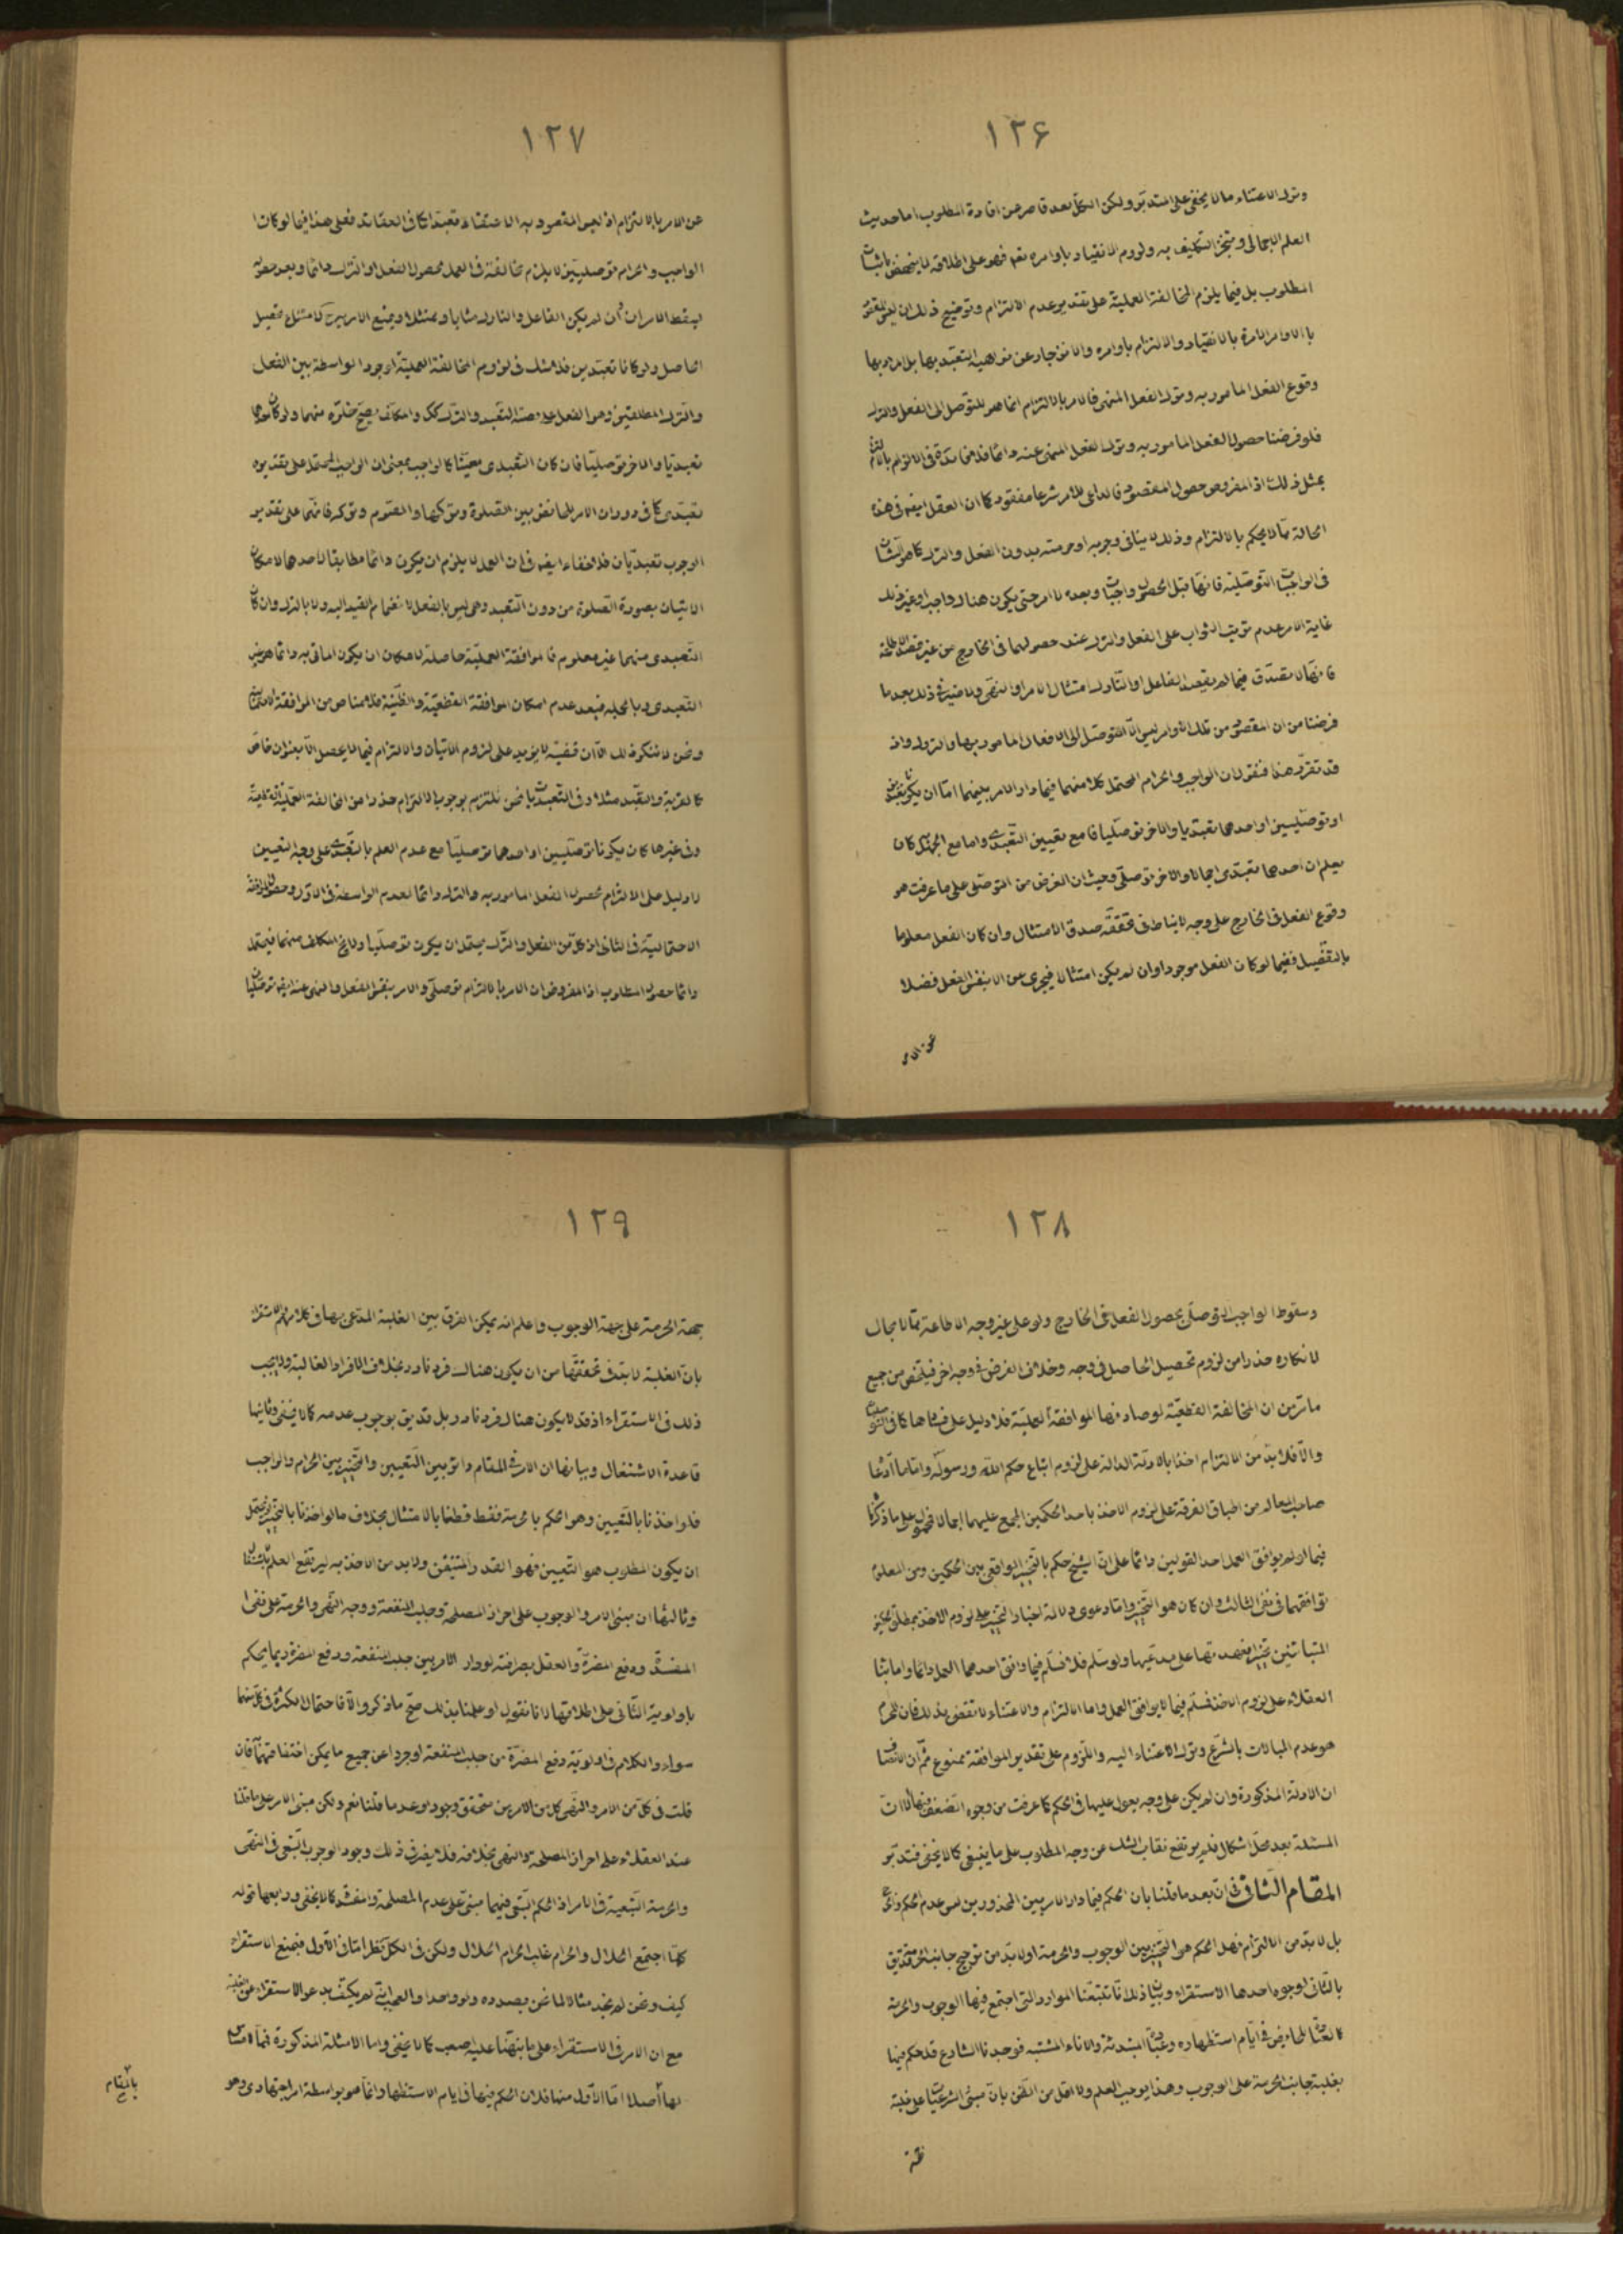 ١٢۶
وترك الاعتناء مما لا يخفى على المتدبّر ولكن الكلّ بعد قاصر عن افادة المطلوب اما حديث
العلم الاجمالى وتنجّز التكليف به ولزوم الانقياد باوامره نعم فهو على اطلاقه لا ينهض باثبات
المطلوب بل فيما يلزم المخالفة العمليّة على تقدير عدم الالتزام وتوضيح ذلك ان ليس المقصود
بالاوامر الامرة بالانقياد والالتزام باوامره والانزجار عن نواهيه التعبّد بها بل المراد بها
وقوع الفعل المامور به وترك الفعل المنهى فالامر بالالتزام انما هو للتوصّل الى الفعل والترك
فلو فرضنا حصول الفعل المامور به وترك الفعل المنهى عنه دائما فلا فائدة فى الالزام بالالتزام
بمثل ذلك اذ المفروض حصول المقصود فالداعى للامر شرعا مفقود كما ان العقل ايضا فى هذه
الحالة مما لا يحكم بالالتزام وذلك لا ينافى وجوبه او حرمته بدون الفعل والترك كما هو الشان
فى الواجبات التوصّليّة فانها قبل الحصول واجبات وبعده لا امر حتى يكون هناك واجب او غير ذلك
غاية الامر عدم ترتيب الثواب على الفعل والترك عند حصولهما فى الخارج من غير قصد الاطاعة
فانها لا تصدق فيما لم يقصد الفاعل او التارك امتثال الامر او النهى ولا ضير فى ذلك بعد ما
فرضنا من ان المقصود من تلك الاوامر ليس الّا التوصّل الى الافعال المامور بها والتروك واذ
قد تقرّر هذا فنقول ان الواجب والحرام المحتمل كلا منهما فيما دار الامر بينهما امّا ان يكونا تعبديين
او توصّليين او احدهما تعبّديا والاخر توصّليا فامع تعيين التعبّدى واما مع الجهل كان
يعلم ان احدهما تعبّدى اجمالا والاخر توصّلى وحيث ان الغرض من التوصّلى على ما عرفت هو
وقوع الفعل فى الخارج على وجه لا يناط فى تحققه صدق الامتثال وان كان الفعل معلوما
بالتفصيل ففيما لو كان الفعل موجودا وان لم يكن امتثالا فيجزى عن الامر بنفس الفعل فضلا
عن الامر
١٢٧
عن الامر بالالتزام اذ ليس المقصود به الاعتقاد تعبّدا كما فى العقائد فعلى هذا فيما لو كان
الواجب والحرام توصليّين لا يلزم مخالفة فى العمل لحصول الفعل او الترك دائما وبعد حصوله
يسقط الامر ان لم يكن الفاعل والتارك مثابا وممتثلا ويمنع الامر بهما لامتناع تحصيل
الحاصل ولو كانا تعبّديين فلا شك فى لزوم المخالفة العمليّة لوجود الواسطة بين الفعل
والترك المطلقين وهو الفعل على وجه التعبّد والترك كك والمكلف يصحّ خلوّه منهما ولو كان احدهما
تعبديا والاخر توصليّا فان كان التعبدى معيّنا كالواجب بمعنى ان الواجب المحتمل على تقديره
تعبّدى كما فى دوران الامر للحائض بين الصلوة وتركها والصوم وتركه فانهما على تقدير
الوجوب تعبديان فلا خفاء ايضا فى ان العمل لا يلزم ان يكون دائما مطابقا لاحدهما لامكان
الاتيان بصورة الصلوة من دون التعبد وهى ليس بالفعل لانضمام القيد اليه ولا بالترك وان كان
التعبدى منهما غير معلوم فالموافقة العمليّة حاصلة لامكان ان يكون الماتى به دائما هو غير
التعبدى وبالجمله فبعد عدم امكان الموافقة القطعيّة والظنّية فلا مناص من الموافقة الاحتماليّة
ونحن لا ننكر ذلك الّا ان قضيّته لا يزيد على لزوم الاتيان والالتزام فيما لا يحصل الّا بعنوان خاصّ
كالقربة والتعبّد مثلا وفى التعبديّات نحن نلتزم بوجوب الالتزام حذرا من المخالفة العمليّة القطعيّة
وفى غيرها كان يكونا توصليّين او احدهما توصليّا مع عدم العلم بالتعبّدى على وجه التعيين
لا دليل على الالتزام لحصول الفعل المامور به والترك دائما لعدم الواسطة فى الاوّل وحصول الموافقة
الاحتماليّة فى الثانى اذ كلّ من الفعل والترك يحتمل ان يكون توصليّا ولا يخ المكلف منهما فيحتمل
دائما حصول المطلوب اذ المفروض ان الامر بالالتزام توصلّى والامر بنفس الفعل والنهى عنه ايضا توصليّان
١٢٨
وسقوط الواجب التوصلّى بحصول الفعل فى الخارج ولو على غير وجه الاطاعة ممّا لا مجال
لانكاره حذرا من لزوم تحصيل الحاصل فى وجه وخلاف الغرض فى وجه اخر فيلخّص من جميع
ما مرّ من ان المخالفة القطعيّة لو صادفها الموافقة العمليّة فلا دليل على فسادها كما فى التوصليّات
والّا فلا بدّ من الالتزام اخذا بالادلّة الدالة على لزوم اتباع حكم اللّه ورسوله وامّا ما ادّعاه
صاحب المعالم من اطباق الفرقة على لزوم الاخذ باحد الحكمين المجمع عليهما اجمالا فمحمول على ما ذكرنا
فيما لو لم يوافق العمل احد القولين دائما على انّ الشيخ حكم بالتخيير الواقعى بين الحكمين ومن المعلوم
توافقهما فى نفى الثالث وان كان هو التخيير وامّا دعوى دلالة اخبار التخيير على لزوم الاخذ بمطلق
المتباينين تخييرا فعهدتها على مدعيها ولو سلّم فلا نسلّم فيما وافق احدهما العمل دائما واما بناء
العقلاء على لزوم الاخذ فسلّم فيما لا يوافق العمل واما الالتزام والاعتناء لا نقض بذلك فان المحرّم
هو عدم المبالات بالشرع وترك الاعتناء اليه واللّزوم على تقدير الموافقة ممنوع ثمّ ان الانصاف
ان الادلّة المذكورة وان لم يكن على وجه يعول عليها فى الحكم كما عرفت من وجوه التضعيف فيها الا انّ
المسئلة بعد محلّ اشكال فلم يرتفع نقاب الشك عن وجه المطلوب على ما ينبغى كما لا يخفى فتدبّر
المقام الثّانى فى انّ بعد ما قلنا بان الحكم فيما دار الامر بين المحذورين ليس عدم الحكم واقعا
بل لا بدّ من الالتزام فهل الحكم هو التخيير بين الوجوب والحرمة او لا بدّ من ترجيح جانب الحرمة قد يق
بالثّانى لوجوه احدها الاستقراء وبيان ذلك انّا تتبّعنا الموارد التى اجتمع فيها الوجوب والحرمة
كالعبادة للحائض فى ايّام استظهاره وعبادة المبتدئة والاناء المشتبه فوجدنا الشارع قد حكم فيها
بغلبة جانب الحرمة على الوجوب وهذا يوجب العلم ولا اقل من الظن بان مبنى الشرعيّات على غلبة
جهة
١٢٩
جهة الحرمة على جهة الوجوب واعلم انه يمكن الفرق بين الغلبة المدّعى بها فى كلامهم والاستقراء
بان الغلبة لا بدّ فى تحققها من ان يكون هناك فرد نادر بخلاف الافراد الغالبة ولا يجب
ذلك فى الاستقراء اذ قد لا يكون هناك فرد نادر بل قد يق بوجوب عدمه كما لا يخفى وثانيها
قاعدة الاشتغال وبيانها ان الامر فى المقام دائر بين التعيين والتخيير بين الحرام والواجب
فلو اخذنا بالتعيين وهو الحكم بالحرمة فقط قطعنا بالامتثال بخلاف ما لو اخذنا بالتخيير لاحتمال
ان يكون المطلوب هو التعيين فهو القدر المتيقن ولا بد من الاخذ به ليرتفع العلم بالاشتغال
وثالثها ان مبنى الامر والوجوب على احراز المصلحة وجلب المنفعة ووجه النّهى والحرمة على نفى
المفسدة ودفع المضرّة والعقل بصرافته لو دار الامر بين جلب المنفعة ودفع المضرة ربما يحكم
باولوية الثّانى على اطلاقها لانا نقول لو علمنا بذلك صحّ ما ذكر والّا فاحتمال الكثرة فى كلّ منهما
سواء والكلام فى اولويّة دفع المضرّة من جلب المنفعة لو جرد عن جميع ما يمكن اختفافهما فان
قلت فى كلّ من الامر والنهى كل من الامرين متحقق وجودا وعدما قلنا نعم ولكن مبنى الامر على ما قلنا
عند العقلاء على احراز المصلحة والنهى بخلافه فلا يضر فى ذلك وجود الوجوب التبعى فى النهى
والحرمة التبعية فى الامر اذ الحكم التبعى فيهما مبنى على عدم المصلحة والمفسدة كما لا يخفى ورابعها قوله
كلّما اجتمع الحلال والحرام غلب الحرام الحلال ولكن فى الكلّ نظر امّا فى الاوّل فبمنع الاستقراء
كيف ونحن لم نجد مثالا لما نحن بصدده ولو واحدا والعجب انّه لم يكتف بدعوى الاستقراء عن الغلبة
مع ان الامر فى الاستقراء على ما نبّهنا عليه اصعب كما لا يخفى واما الامثلة المذكورة فما لا مساس
بها اصلا امّا الاوّل منها فلان الحكم فيها فى ايام الاستظهار انّما هو بواسطة امر اجتهادى وهو
بالمقام